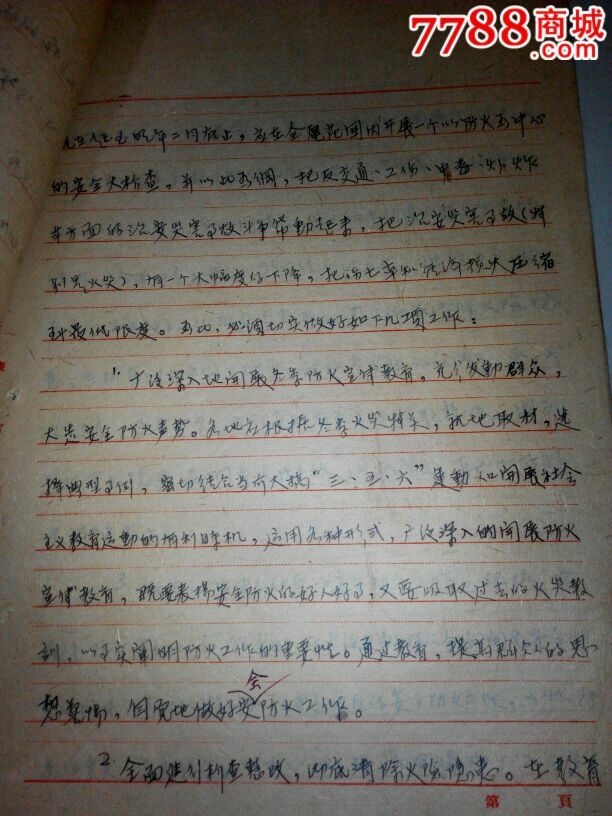 7788商城
com.cn
起至明年二月底止，应在全厂范围内开展一个以防火为中心
的安全大检查，并以此为纲，把反交通、工伤、中毒、爆炸
等方面的治安灾害事故斗争带动起来，把治安灾害事故(特
别是火灾)，有一个大幅度仔下降，把伤亡率和经济损失压缩
到最低限度。为此，必须切实做好如下几项工作：
1 广泛深入地开展冬季防火宣传教育，充分发动群众，
大造安全防火声势。各地应根据冬季火灾特点，就地取材，选
择典型事例，密切结合当前大搞"三、五、六"運動和开展社会
主义教育运动的有利時机，运用各种形式，广泛深入的开展防火
宣传教育，既要表揚安全防火的好人好事，又要吸取过去的火灾教
訓，以事实阐明防火工作的重要性。通过教育，提高
想覚悟，自觉地做好安会防火工作。
2 全面进行检查整改，彻底清除火险隐患。在教育
第 頁